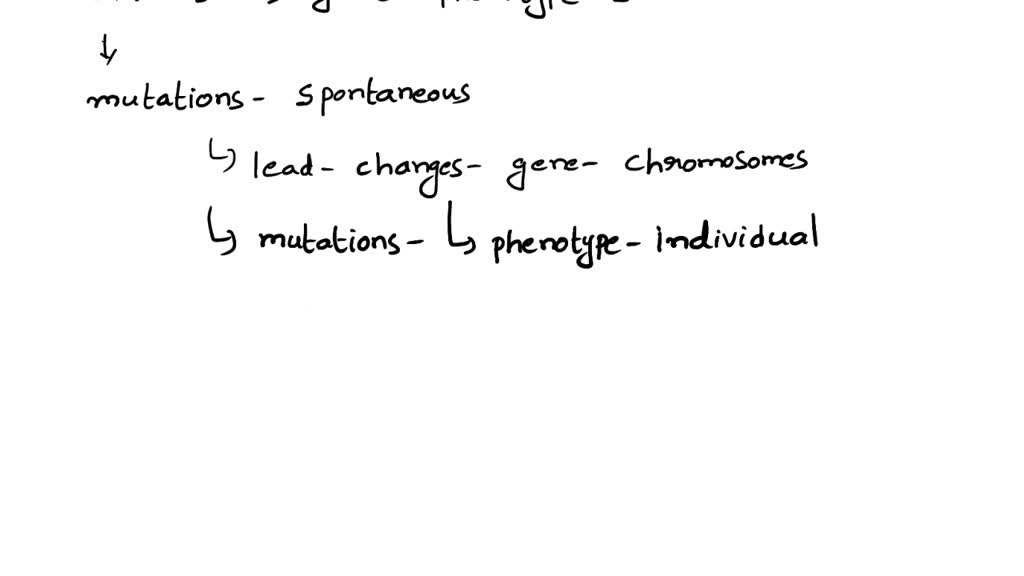 ↓
mutations - spontaneous
↳ lead - changes - gene - chromosomes
↳ mutations - ↳ phenotype - individual